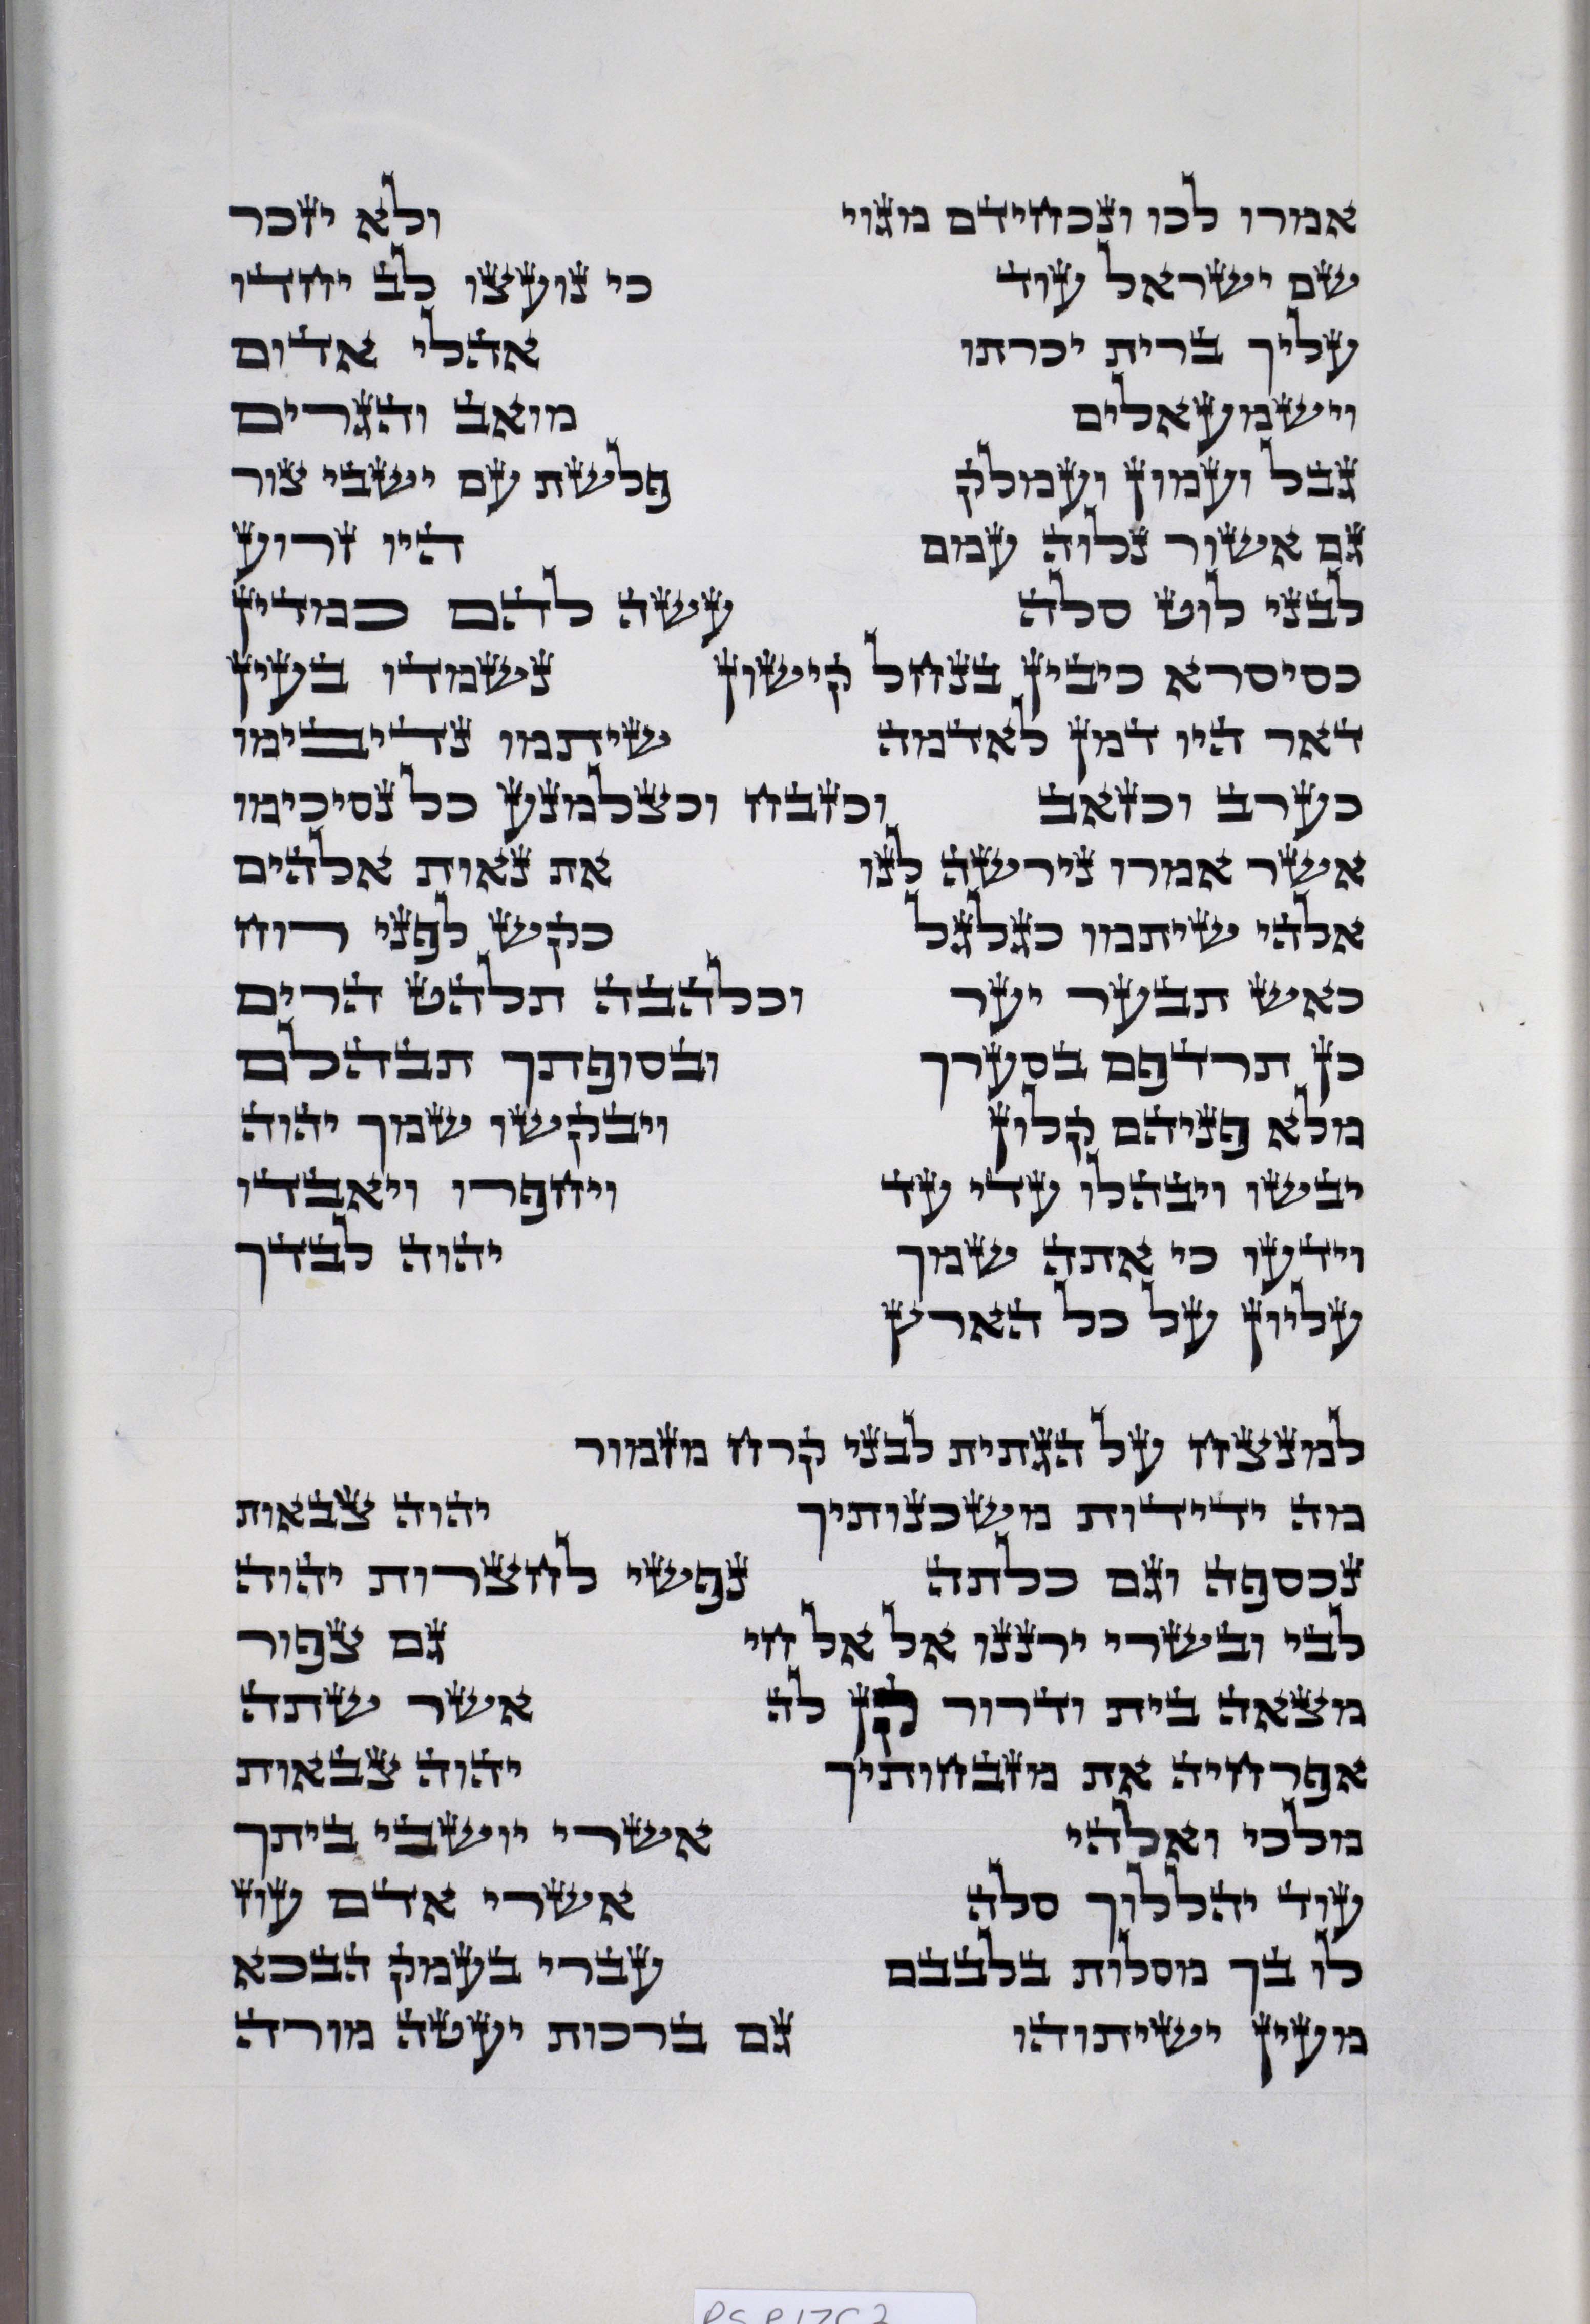 אמרו לכו ונכחידם מגוי ולא יזכר
שם ישראל עוד כי נועצו לב יחדו
עליך ברית יכרתו אהלי אדום
וישמעאלים מואב והגרים
גבל ועמון ועמלק פלשת עם ישבי צור
גם אשור נלוה עמם היו זרוע
לבני לוט סלה עשה להם כמדין
כסיסרא כיבין בנחל קישון נשמדו בעין
דאר היו דמן לאדמה שיתמו נדיבימו
כערב וכזאב וכזבח וכצלמנע כל נסיכימו
אשר אמרו נירשה לנו את נאות אלהים
אלהי שיתמו כגלגל כקש לפני רוח
כאש תבער יער וכלהבה תלהט הרים
כן תרדפם בסערך ובסופתך תבהלם
מלא פניהם קלון ויבקשו שמך יהוה
יבשו ויבהלו עדי עד ויחפרו ויאבדו
וידעו כי אתה שמך יהוה לבדך
עליון על כל הארץ
למנצח על הגתית לבני קרח מזמור
מה ידידות משכנותיך יהוה צבאות
נכספה וגם כלתה נפשי לחצרות יהוה
לבי ובשרי ירננו אל אל חי גם צפור
מצאה בית ודרור קן לה אשר שתה
אפרחיה את מזבחותיך יהוה צבאות
מלכי ואלהי אשרי יושבי ביתך
עוד יהללוך סלה אשרי אדם עוז
לו בך מסלות בלבבם עברי בעמק הבכא
מעין ישיתוהו גם ברכות יעטה מורה